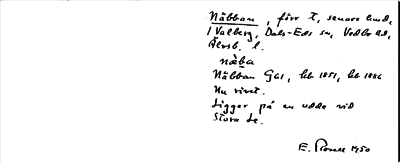 Näbban, förr t, senare lund,
i Valberg, Dals-Eds sn, Vedbo hd,
Älvsb. l.
näba
Näbban GA1, lsk 1851, lsk 1886
Nu rivet.
Ligger på en udde vid
Stora Le.
E. 1950